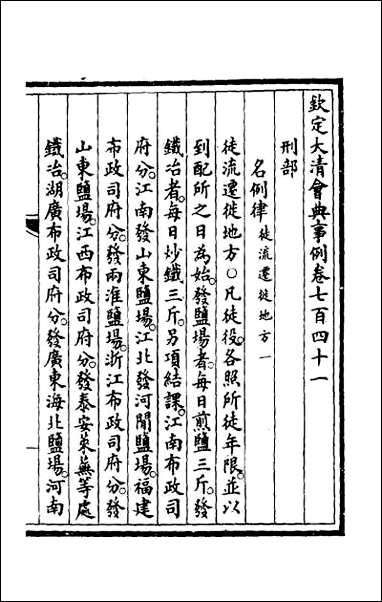 欽定大清會典事例卷七百四十一
刑部
名例律徒流遷徙地方一
徒流遷徙地方○凡徒役。各照所徒年限。並以
到配所之日為始。發鹽場者。每日煎鹽三斤。發
鐵冶者。每日炒鐵三斤。另項結課。江南布政司
府分。江南發山東鹽場。江北發河閒鹽場。福建
布政司府分。發兩淮鹽場。浙江布政司府分。發
山東鹽場。江西布政司府分。發泰安萊蕪等處
鐵冶。湖廣布政司府分。發廣東海北鹽場。河南